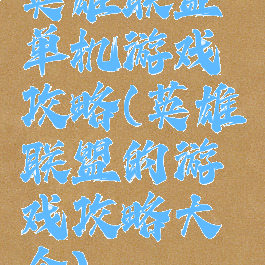 英雄联盟
单机游戏
攻略(英雄
联盟的游
戏攻略大
全)